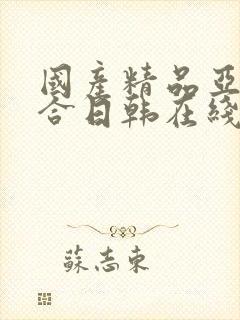 國產精品亞
合日韩在綫
蘇志東